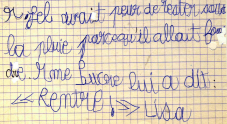 avait peur de rester sous
la pluie parcequ'il allait fon
dre. Mme Eucore lui a dit :
<< Rentre ! >> Lisa